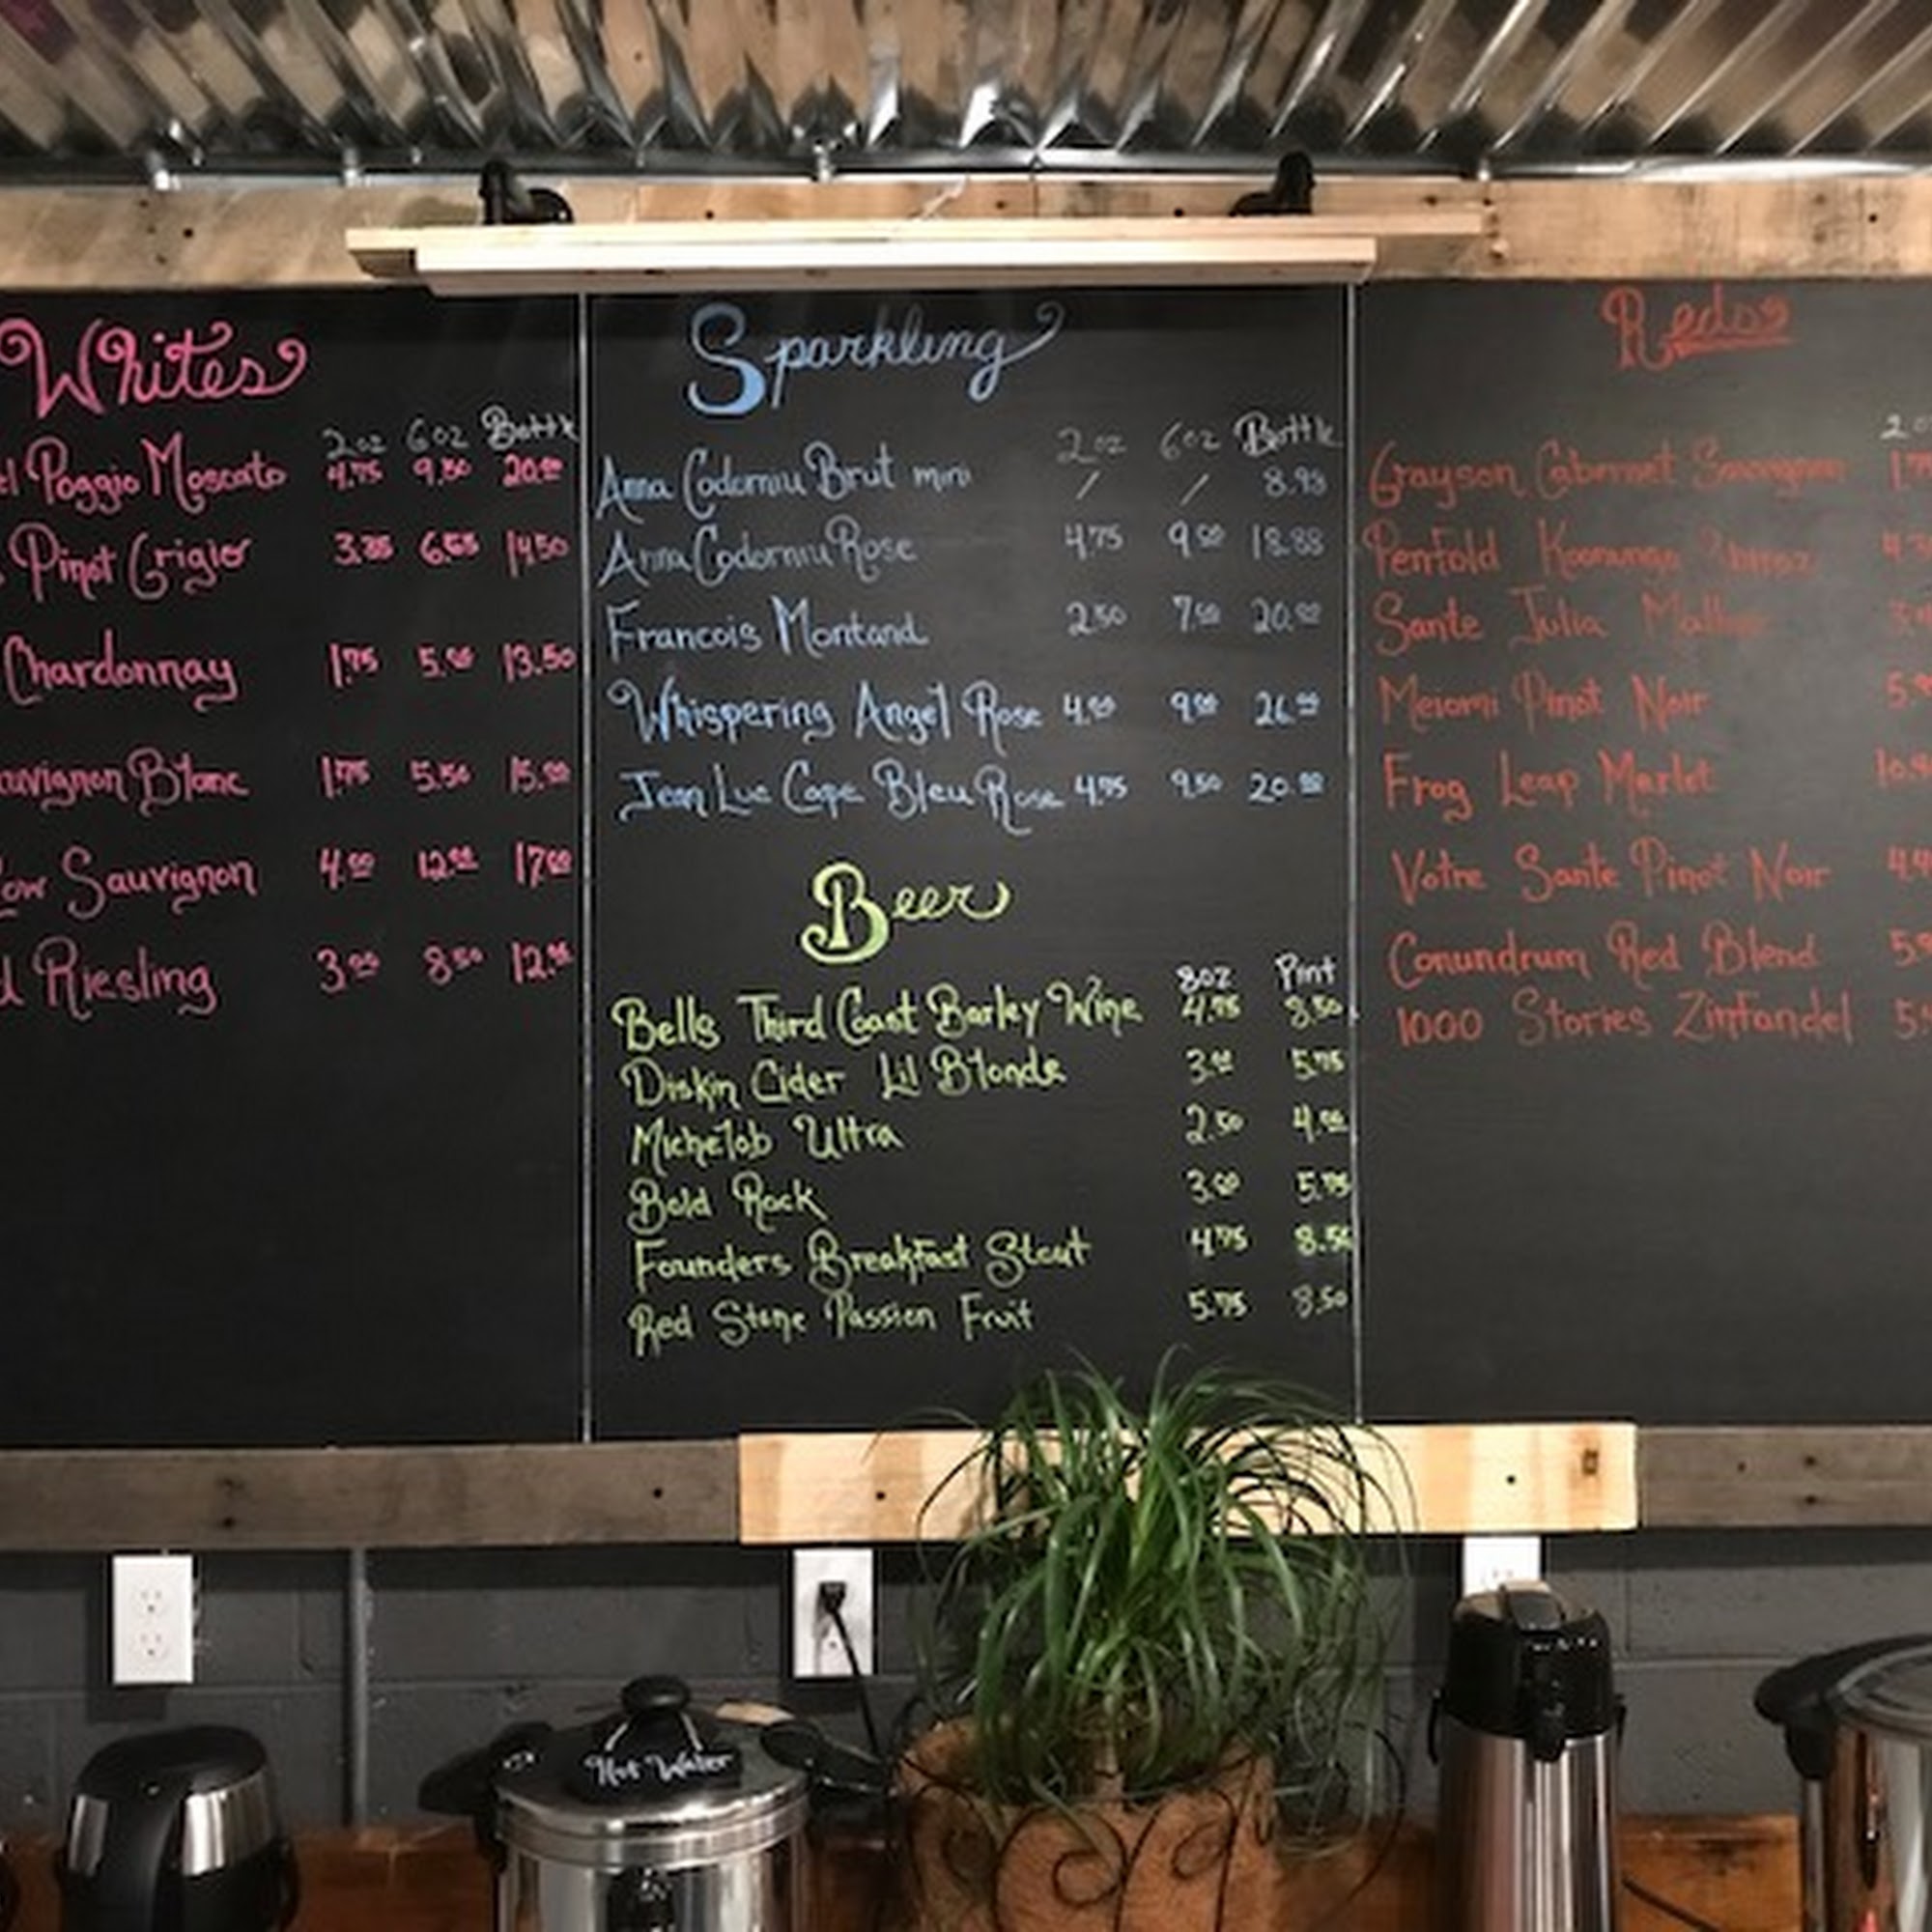 Whites
2oz 6oz Bottle
Poggio Moscato 4.75 9.50 20.00
Pinot Grigio 14.50
Chardonnay 1.75 5.00 13.50
Blanc 1.75 5.50 15.00
Sauvignon 4.00 12.00 17.00
Riesling 3.00 8.50
Sparkling
2oz 6oz Bottle
Anna Codorniu Brut mini / / 8.95
Anna Codorniu Rose 4.75 9.00 18.88
Francois Montand 2.50 7.00 20.00
Whispering Angel Rose 4.00 9.00 26.00
Jean Luc Cope Bleu Rose 4.75 9.50 20.00
Beer
8oz Pint
Bells Third Coast Barley Wine 4.75 8.50
Diskin Cider Lil Blonde 3.00 5.75
Michelob Ultra 2.50 4.00
Bold Rock 3.00 5.75
Founders Breakfast Stout 4.75 8.50
Red Stone Passion Fruit 5.75 8.50
Reds
Grayson Cabernet
Penfold
Sante Julia
Meiomi Pinot Noir
Frog Leap Merlot
Votre Sante Pinot Noir
Conundrum Red Blend
1000 Stories Zinfandel
Hot Water